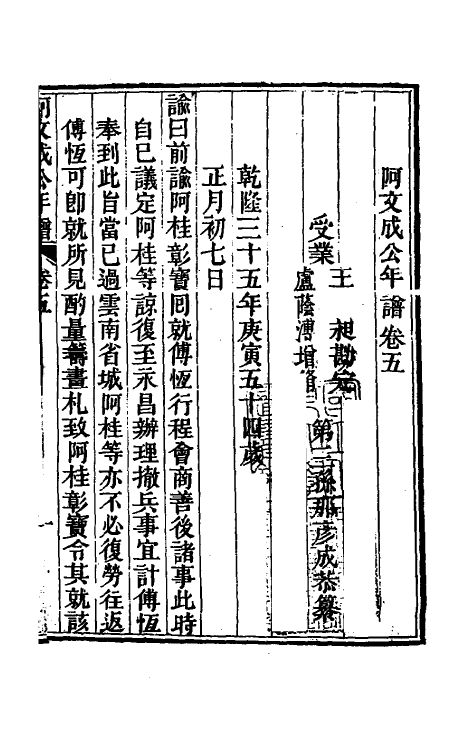 阿文成公年譜卷五
第三孫那彥成恭纂
受業
王昶勘定
盧蔭溥增修
乾隆三十五年庚寅五十四歲
正月初七日
諭曰前諭阿桂彰寶囘就傅恆行程會商善後諸事此時
自已議定阿桂等諒復至永昌辦理撤兵事宜計傅恆
奉到此旨當已過雲南省城阿桂等亦不必復勞往返
傅恆可卽就所見酌量籌畫札致阿桂彰寶令其就該
阿文成公年譜 卷五 一